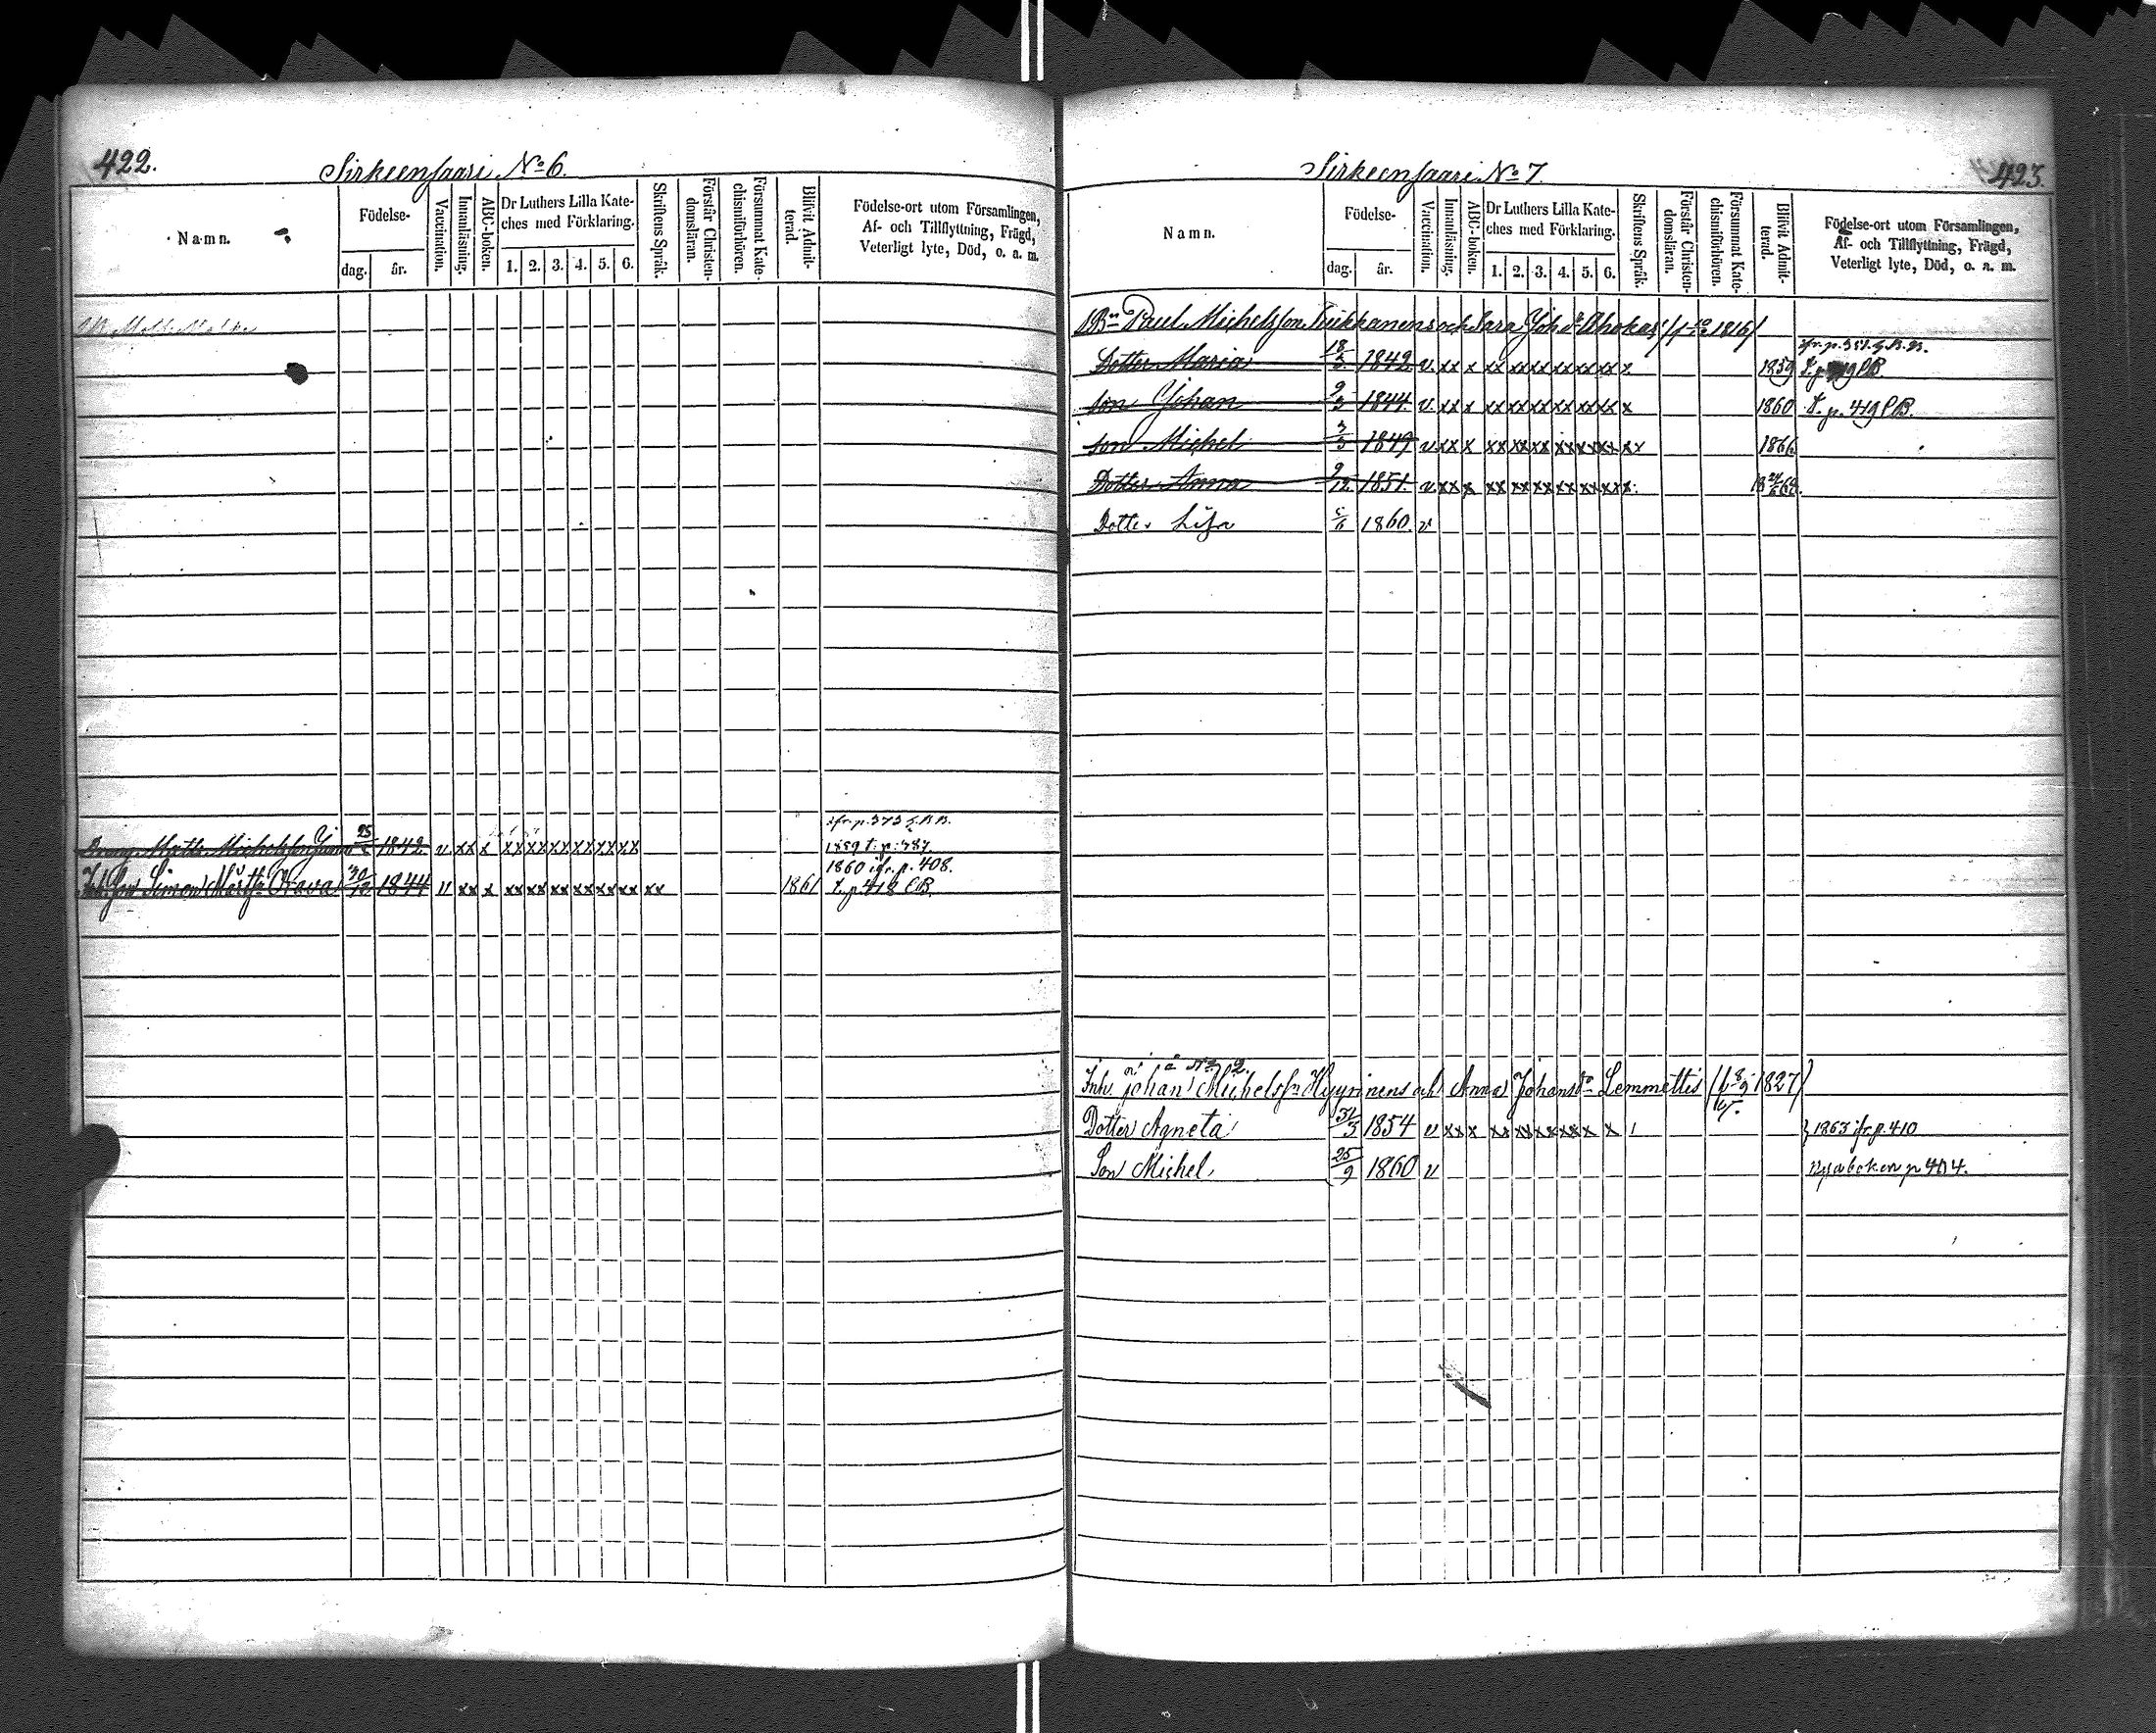 422.
Sirkeensaari No 6.
Namn.
Födelse-
dag.
år.
Vaccination.
Innanläsning.
ABC-boken.
Dr Luthers Lilla Kate-
ches med Förklaring.
1. 2. 3. 4. 5. 6.
Skriftens Språk.
Förstår Christen-
domsläran.
Försummat Kate-
chismiförhören.
Blifvit Admit-
terad.
Födelse-ort utom Församlingen,
Af- och Tillflyttning, Frägd,
Veterligt lyte, Död, o. a. m.
ifr. p. 373
Dreng Matts Michelsson 1842 v xx x xx xx xx xx xx xx 1859 t. p. 387.
1860 ifr. p. 408.
Simon Orava 30/12 1844 v xx x xx xx xx xx xx xx xx 1861 t. p 418 CB.
423.
Sirkeensaari No 7.
Namn.
Födelse-
dag.
år.
Vaccination.
Innanläsning.
ABC-boken.
Dr Luthers Lilla Kate-
ches med Förklaring.
1. 2. 3. 4. 5. 6.
Skriftens Språk.
Förstår Christen-
domsläran.
Försummat Kate-
chismiförhören.
Blifvit Admit-
terad.
Födelse-ort utom Församlingen,
Af- och Tillflyttning, Frägd,
Veterligt lyte, Död, o. a. m.
Paul Michelsson Tiukkanens och Sara Joh. Ahokas 1816
Dotter Maria 1842 v xx x xx xx xx xx xx xx x 1859
Son Johan 1844 v xx x xx xx xx xx xx xx x 1860 t. p. 419 CB.
Son Michel 1849 v xx x xx xx xx xx xx xx xx 1866
Dotter Anna 9/12 1851 v xx x xx xx xx xx xx xx x
Dotter Lisa 1860. v
å No 2.
Inh. Johan Michelss Hyyrinens och Anna Johans Lemmettis 1827
Dotter Agneta 31/3 1854 v xx x xx xx xx xx x x 1 1863 ifr. p. 410
Son Michel 25/9 1860 v Nyaboken p 404.